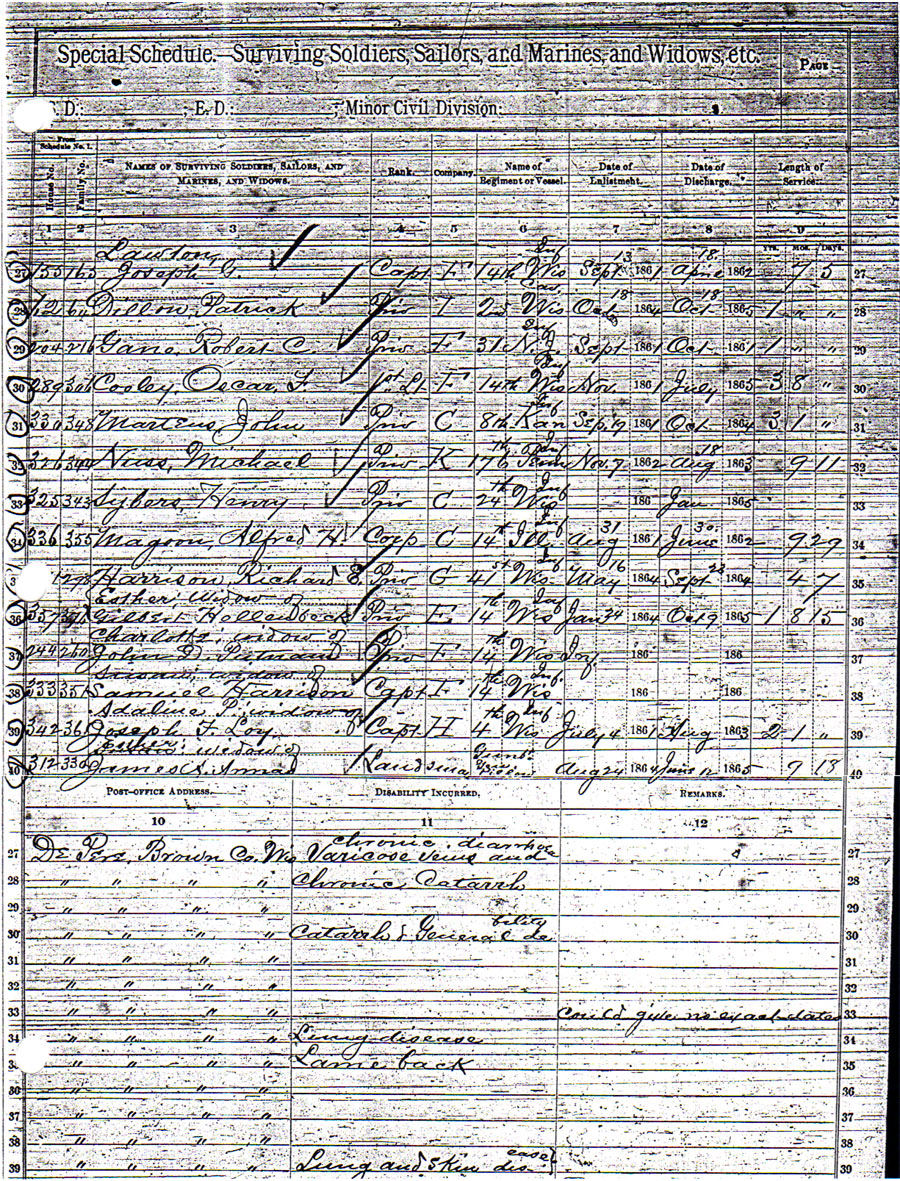 Special Schedule.—Surviving Soldiers, Sailors, and Marines, and Widows, etc.
PAGE
S. D.: ; E. D.: ; Minor Civil Division:
From Schedule No. 1.
House No.
Family No.
NAMES OF SURVIVING SOLDIERS, SAILORS, AND MARINES, AND WIDOWS.
Rank.
Company.
Name of Regiment or Vessel.
Date of Enlistment.
Date of Discharge.
Length of Service.
1 2 3 4 5 6 7 8 9
Yrs. Mos. Days.
27 155 165 Lawton, Joseph G. Capt F 14th Wis Inf Sept 13 1861 April 18 1862 7 5 27
28 Dillon, Patrick Priv I 2nd Wis Cav Oct 18 1864 Oct 18 1865 1 " " 28
29 204 216 Gane, Robert C. Priv F 31 N.J. Inf Sept 186 Oct 186 1 " " 29
30 289 306 Cooley, Oscar F. 1st Lt F 14th Wis Inf Nov. 1861 July 1865 3 8 " 30
31 330 348 Martens, John Priv C 8th Kan Inf Sep. 19 1861 Oct 1864 3 1 " 31
32 Nuss, Michael Priv K 176th Penn Inf Nov. 7 1862 Aug 18 1863 9 11 32
33 325 343 Sybers, Henry Priv C 24th Wis Inf 186 Jan 1865 33
34 336 355 Magoon, Alfred H. Corp C 14th Ill Inf Aug 31 1861 June 30 1862 9 29 34
Harrison, Richard E Priv G 41st Wis I May 16 1864 Sept 22 1864 4 7 35
36 357 Esther, widow of Gilbert Hollenbeck Priv E 14 Wis Inf Jan 24 1864 Oct 9 1865 1 8 15 36
37 244 260 Charlotte, widow of John D. Putnam Priv F 14th Wis Inf. 186 186 37
38 333 351 Susan, widow of Samuel Harrison Capt F 14th Wis Inf. 186 186 38
39 342 361 Adaline P. widow of Joseph F. Loy. Capt. H 4th Wis Inf July 4 1861 Aug 1863 2 1 " 39
40 312 330 widow of James Landsman Aug 24 1864 June 12 1865 9 18 40
POST-OFFICE ADDRESS.
DISABILITY INCURRED,
REMARKS.
10 11 12
27 De Pere, Brown Co. Wis Varicose veins and chronic diarrhoe 27
28 " " " " Chronic Catarrh 28
29 " " " " 29
30 " " " " Catarrh & General debility 30
31 " " " " 31
32 " " " " 32
33 " " " " Could give no exact dates 33
" " " " Lung disease 34
" " " " Lame back 35
36 " " " " 36
37 " " " " 37
38 " " " " 38
39 " " " " Lung and Skin disease 39